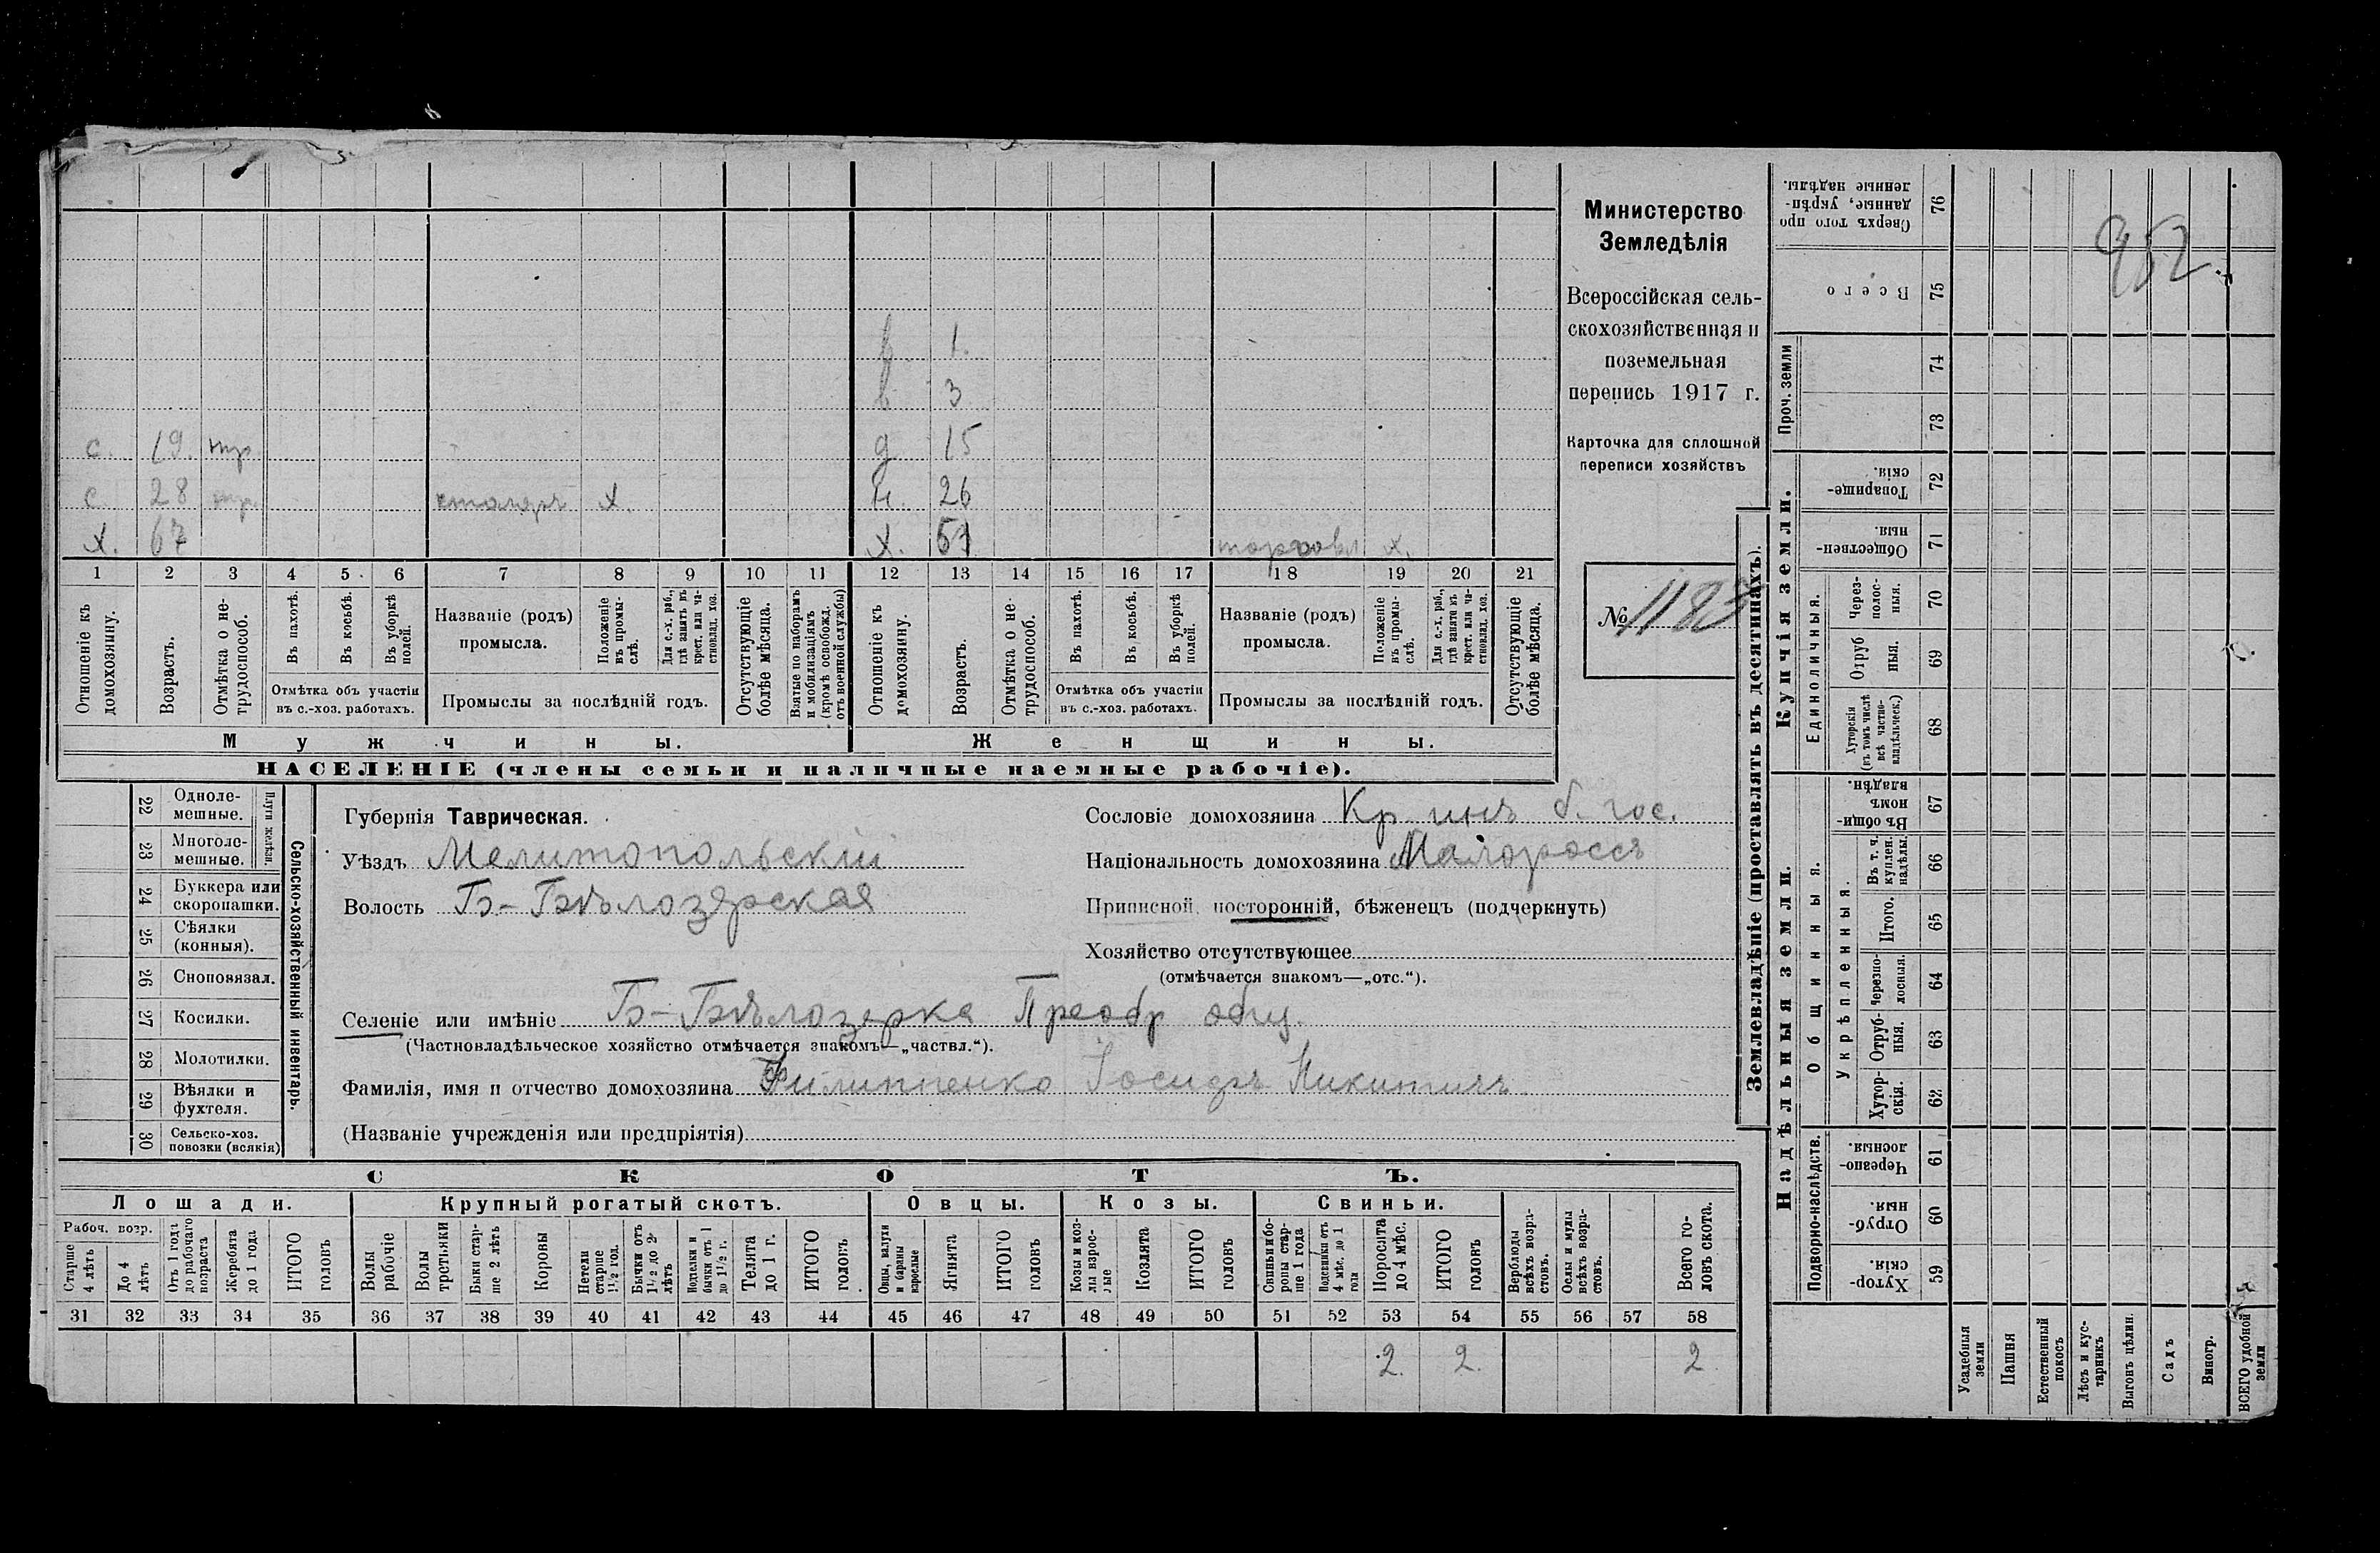 в 1.
в 3
с. 19. тр. д 15
с. 28 тр. столяръ х. н. 26
х. 67 х. торговл х.
1 2 3 4 5 6 7 8 9 10 11 12 13 14 15 16 17 18 19 20 21
Отношеніе къ домохозяину.
Возрастъ.
Отмѣтка о не-трудоспособ.
Въ пахотѣ.
Въ косьбѣ.
Въ уборкѣ полей.
Отмѣтка объ участіи
въ с.-хоз. работахъ.
Названіе (родъ)
промысла.
Положеніе въ промы-слѣ.
Для с.-х. раб., гдѣ занятъ въ крест. или ча-стновлад. хоз.
Промыслы за послѣдній годъ.
Отсутствующіе болѣе мѣсяца.
Взятые по наборамъ и мобилизаціямъ (кромѣ освобожд. отъ военной службы)
Отношеніе къ домохозяину.
Возрастъ.
Отмѣтка о не трудоспособ.
Въ пахотѣ.
Въ косьбѣ.
Въ уборкѣ полей.
Отмѣтка объ участіи
въ с.-хоз. работахъ.
Названіе (родъ)
промысла.
Положеніе въ промы-слѣ.
Для с.-х. раб., гдѣ занята въ крест. или ча-стновлад. хоз.
Промыслы за послѣдній годъ.
Отсутствующіе болѣе мѣсяца.
Мужчины. Женщины.
НАСЕЛЕНІЕ (члены семьи и наличные наемные рабочіе).
Министерство
Земледѣлія
Всероссійская сель-
скохозяйственная и
поземельная
перепись 1917 г.
Карточка для сплошной
переписи хозяйствъ
№ 1183
Сельско-хозяйственный инвентарь.
Плуги желѣзн.
22 Одноле-мешные.
23 Многоле-мешные.
24 Буккера или скоропашки.
25 Сѣялки (конныя).
26 Сноповязал.
27 Косилки.
28 Молотилки.
29 Вѣялки и фухтеля.
30 Сельско-хоз. повозки (всякія)
Губернія Таврическая.
Уѣздъ Мелитопольскій
Волость Б-Бѣлозерская
Сословіе домохозяина Кр-инъ б. гос.
Національность домохозяина Малороссъ
Приписной, посторонній, бѣженецъ (подчеркнуть)
Хозяйство отсутствующее
(отмѣчается знакомъ—„отс.“).
Селеніе или имѣніе Б-Бѣлозерка Преобр общ.
(Частновладѣльческое хозяйство отмѣчается знакомъ—„частвл.“).
Фамилія, имя и отчество домохозяина Филиппенко Іосифъ Никитичъ
(Названіе учрежденія или предпріятія)
СКОТЪ.
Лошади. Крупный рогатый скотъ. Овцы. Козы. Свиньи.
Рабоч. возр.
Старше 4 лѣтъ
До 4 лѣтъ
Отъ 1 года до рабочаго возраста
Жеребята до 1 года
ИТОГО головъ
Волы рабочіе
Волы третьяки
Быки стар-ше 2 лѣтъ
Коровы
Нетели старше 1½ год.
Бычки отъ 1½ до 2 лѣтъ
Подтелки и бычки отъ 1 до 1½ г.
Телята до 1 г.
ИТОГО головъ
Овцы, валухи и бараны взрослые
Ягнята
ИТОГО головъ
Козы и коз-лы взрос-лые
Козлята
ИТОГО головъ
Свиньи и бо-ровы стар-ше 1 года
Подсвинки отъ 4 мѣс. до 1 года
Поросята до 4 мѣс.
ИТОГО головъ
Верблюды всѣхъ возра-стовъ.
Ослы и мулы всѣхъ возра-стовъ.
Всего го-ловъ скота.
31 32 33 34 35 36 37 38 39 40 41 42 43 44 45 46 47 48 49 50 51 52 53 54 55 56 57 58
2. 2. 2
Землевладѣніе (проставлять въ десятинахъ).
Надѣльныя земли. Купчія земли.
Подворно-наслѣдств.
Общинныя.
Укрѣпленныя.
Единоличныя.
Проч. земли
59 Хутор-скія.
60 Отруб-ныя.
61 Черезпо-лосныя
62 Хутор-скія.
63 Отруб-ныя.
64 Черезпо-лосныя.
65 Итого.
66 Въ т. ч. куплен. надѣлы.
67 Въ общи-номъ владѣн.
68 Хуторскія (въ томъ числѣ всѣ частно-владѣльческ.)
69 Отруб ныя.
70 Через-полос-ныя.
71 Обществен-ныя.
72 Товарище-скія.
73
74
75 Всего
76 Сверхъ того про данные, укрѣп-ленные надѣлы.
Усадебныя земли
Пашня
Естественный покосъ
Лѣсъ и кус-тарникъ
Выгонъ цѣлин.
Садъ
Виногр.
ВСЕГО удобной земли
952